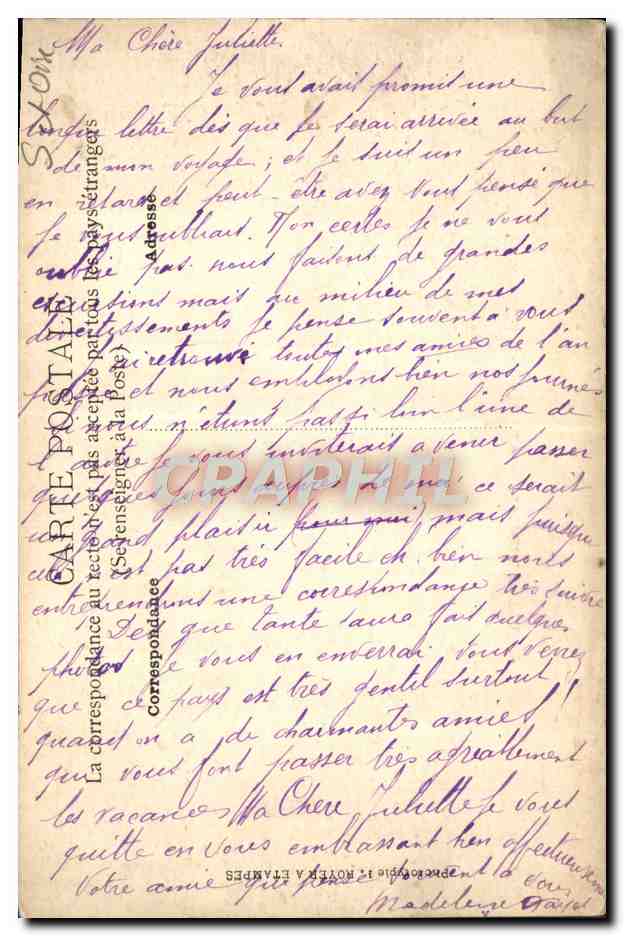 Ma Chère Juliette.
Je vous avait promit une
longue lettre dès que je serai arrivée au but
de mon voyage ; et je suis un peu
en retard et peut-être avez vous pensé que
je vous oubliais. Non certes je ne vous
oublie pas nous faisons de grandes
excursions mais au milieu de mes
divertissements je pense souvent à vous
retrouvé toutes mes amies de l'an
et nous employons bien nos journées
Si nous n'étions pas si loin l'une de
l'autre je vous inviterais a venir passer
quelques jours auprès de moi ce serait
un grand plaisir pour moi, mais puisque
cela est pas très facile eh bien nous
entreprendrons une correspondance très suivie
Dès que tante aura fait quelques
photos je vous en enverrai. Vous verrez
que ce pays est très gentil surtout
quand on a de charmantes amies !
qui vous font passer très agréablement
les vacances Ma Chère Juliette je vous
quitte en vous embrassant bien affectueusement
Votre amie qui pense souvent à vous
Madeleine
CARTE POSTALE
La correspondance au recto n'est pas acceptée par tous les pays étrangers
(Se renseigner à la Poste)
Correspondance
Adresse
Phototypie L. ROYER A ETAMPES
CRAPHIL